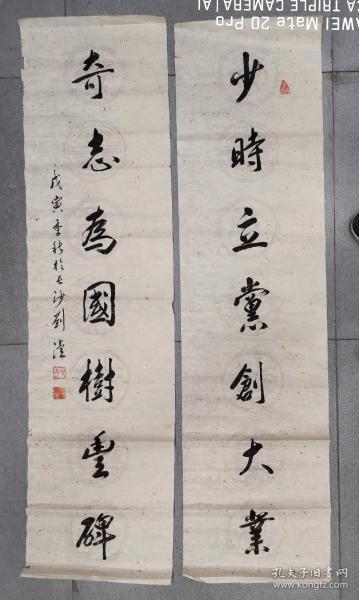 少時立黨創大業
奇志為國樹豐碑
戊寅季秋於長沙劉瀅
AWEI Mate 20 Pro
CA TRIPLE CAMERA | AI
孔夫子旧书网